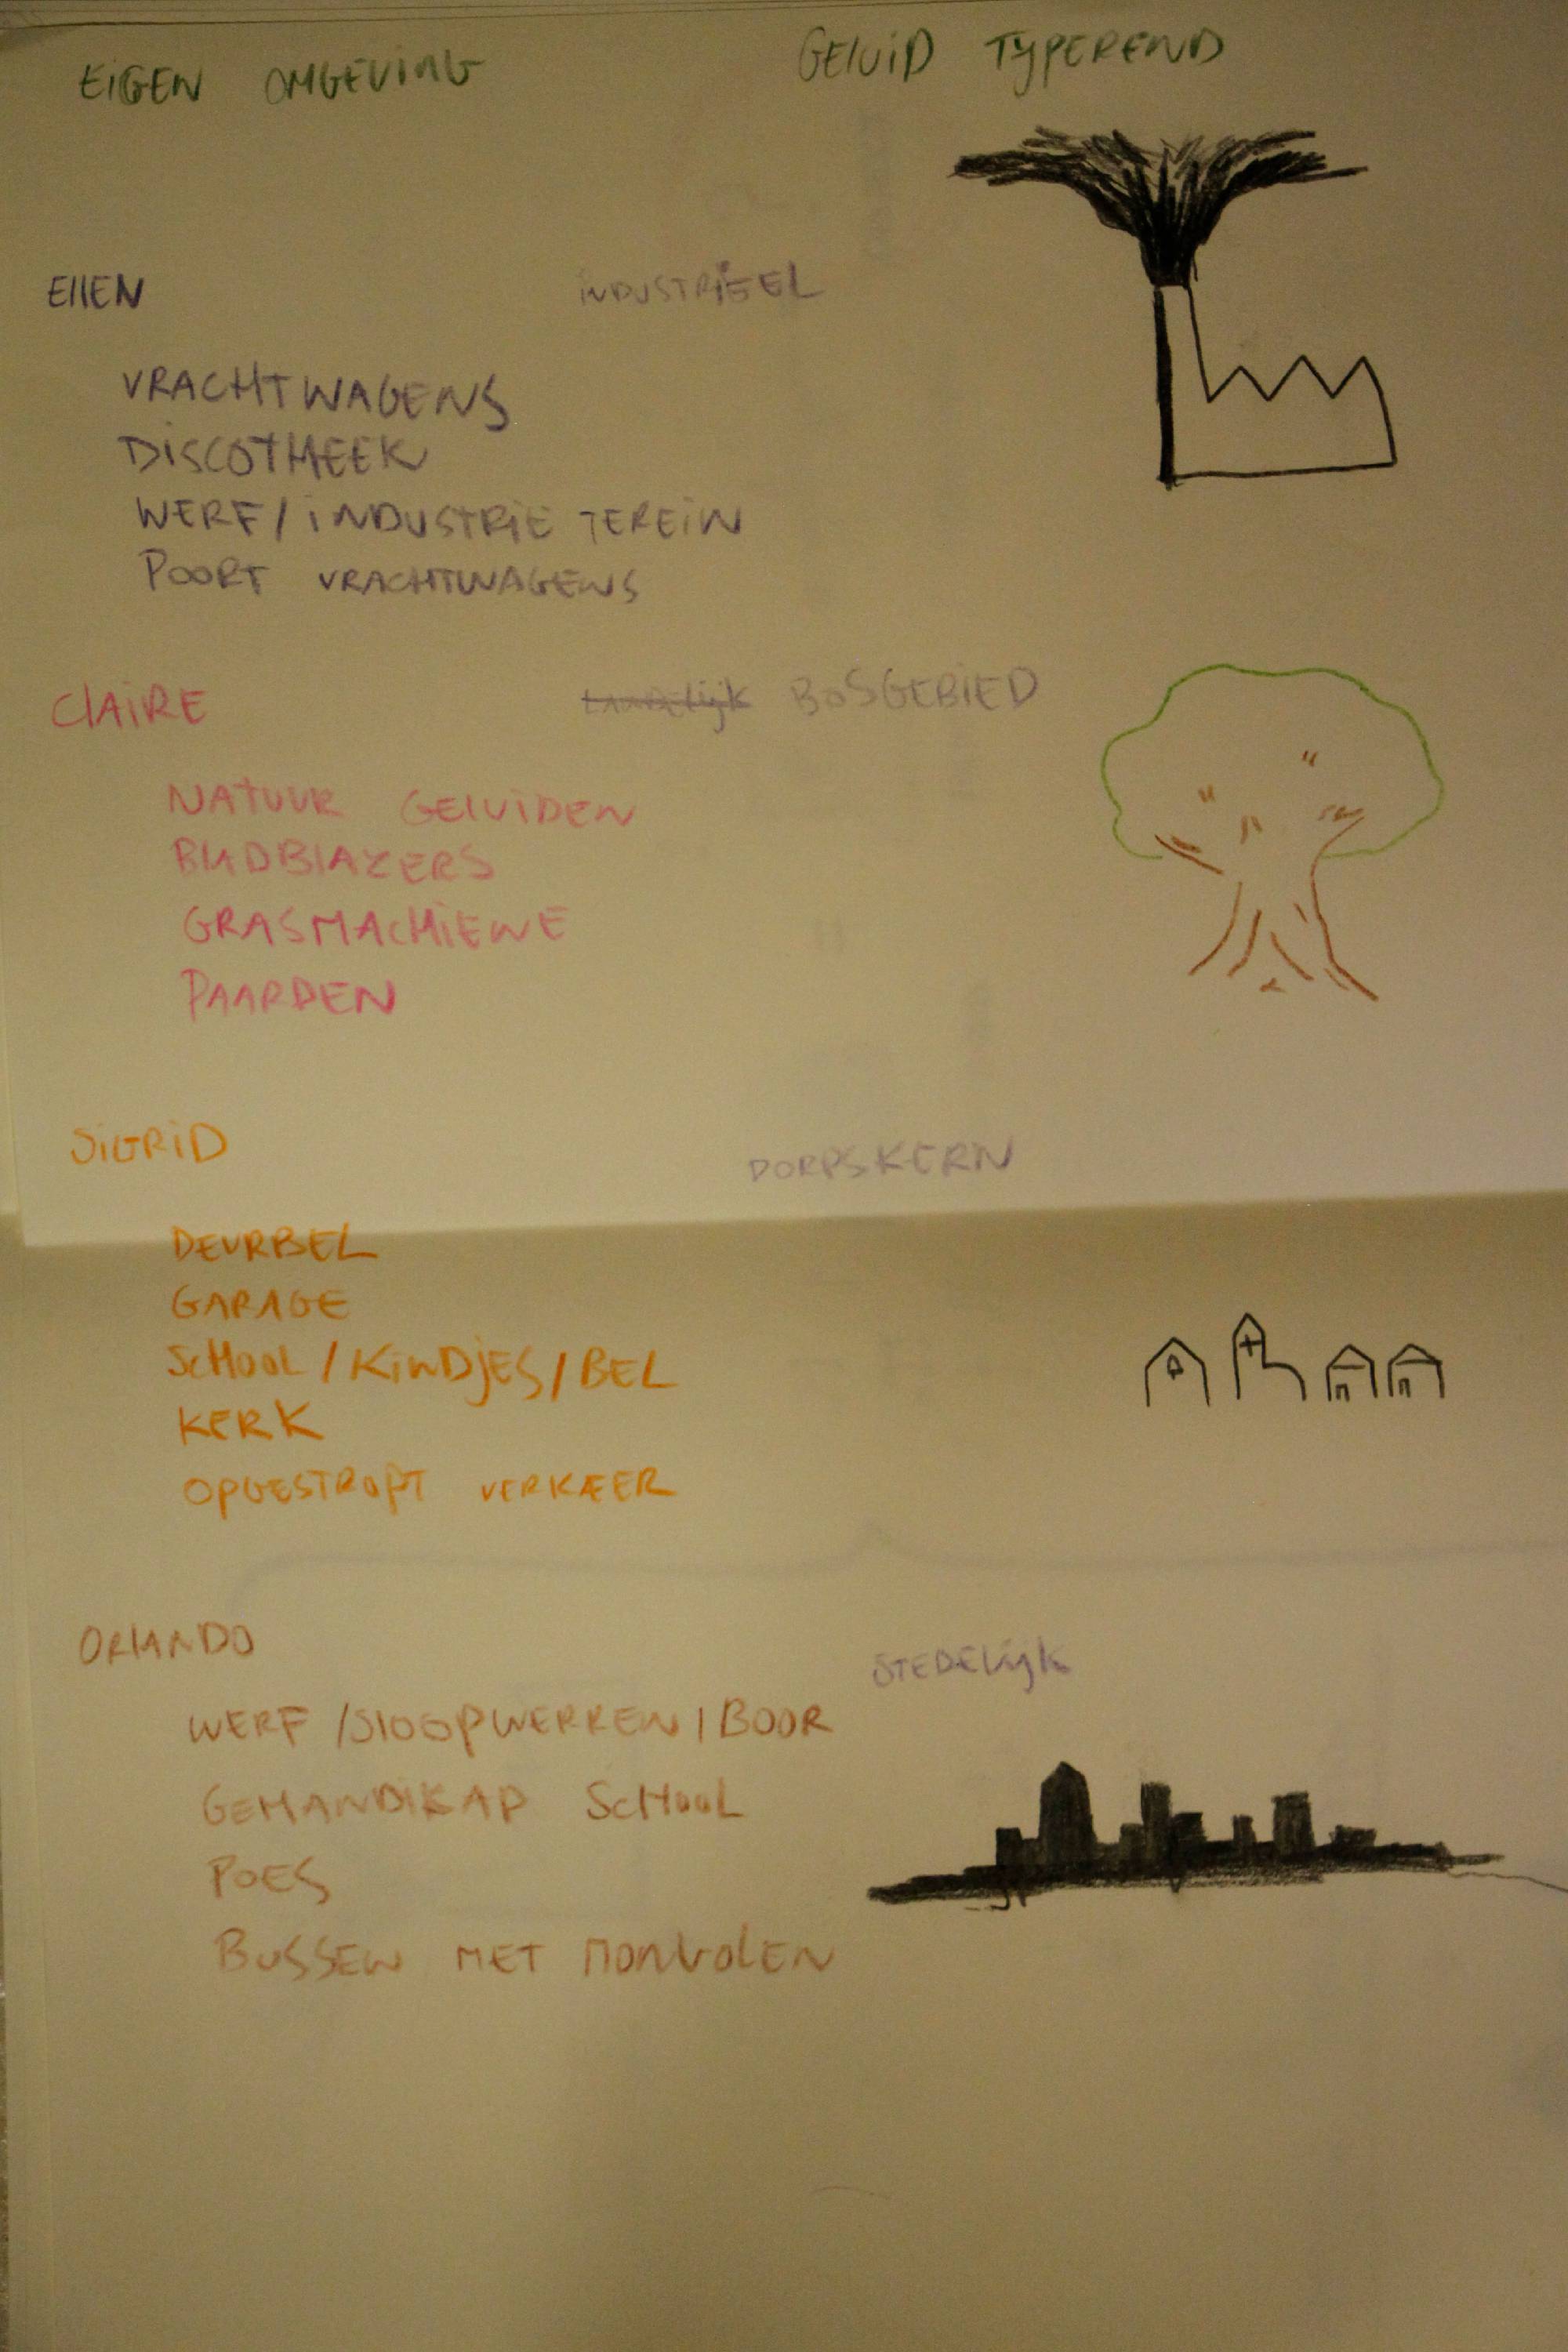 EIGEN OMGEVING
GELUID TYPEREND
EllEN
INDUSTRIEEL
VRACHTWAGENS
DISCOTHEEK
WERF/INDUSTRIE TEREIN
POORT VRACHTWAGENS
ClAIRE
LANDELijk BOSGEBIED
NATUUR GElUIDEN
BlADBlAZERS
GRASMACHIENE
PAARDEN
SIGRID
DORPSKERN
DEURBEL
GARAGE
SCHOOL/KINDJES/BEL
KERK
OPGESTROPT VERKEER
ORlANDO
STEDELijk
WERF/SlOOPWERKEN/BOOR
GEHANDIKAP SCHOOL
POES
BUSSEN MET